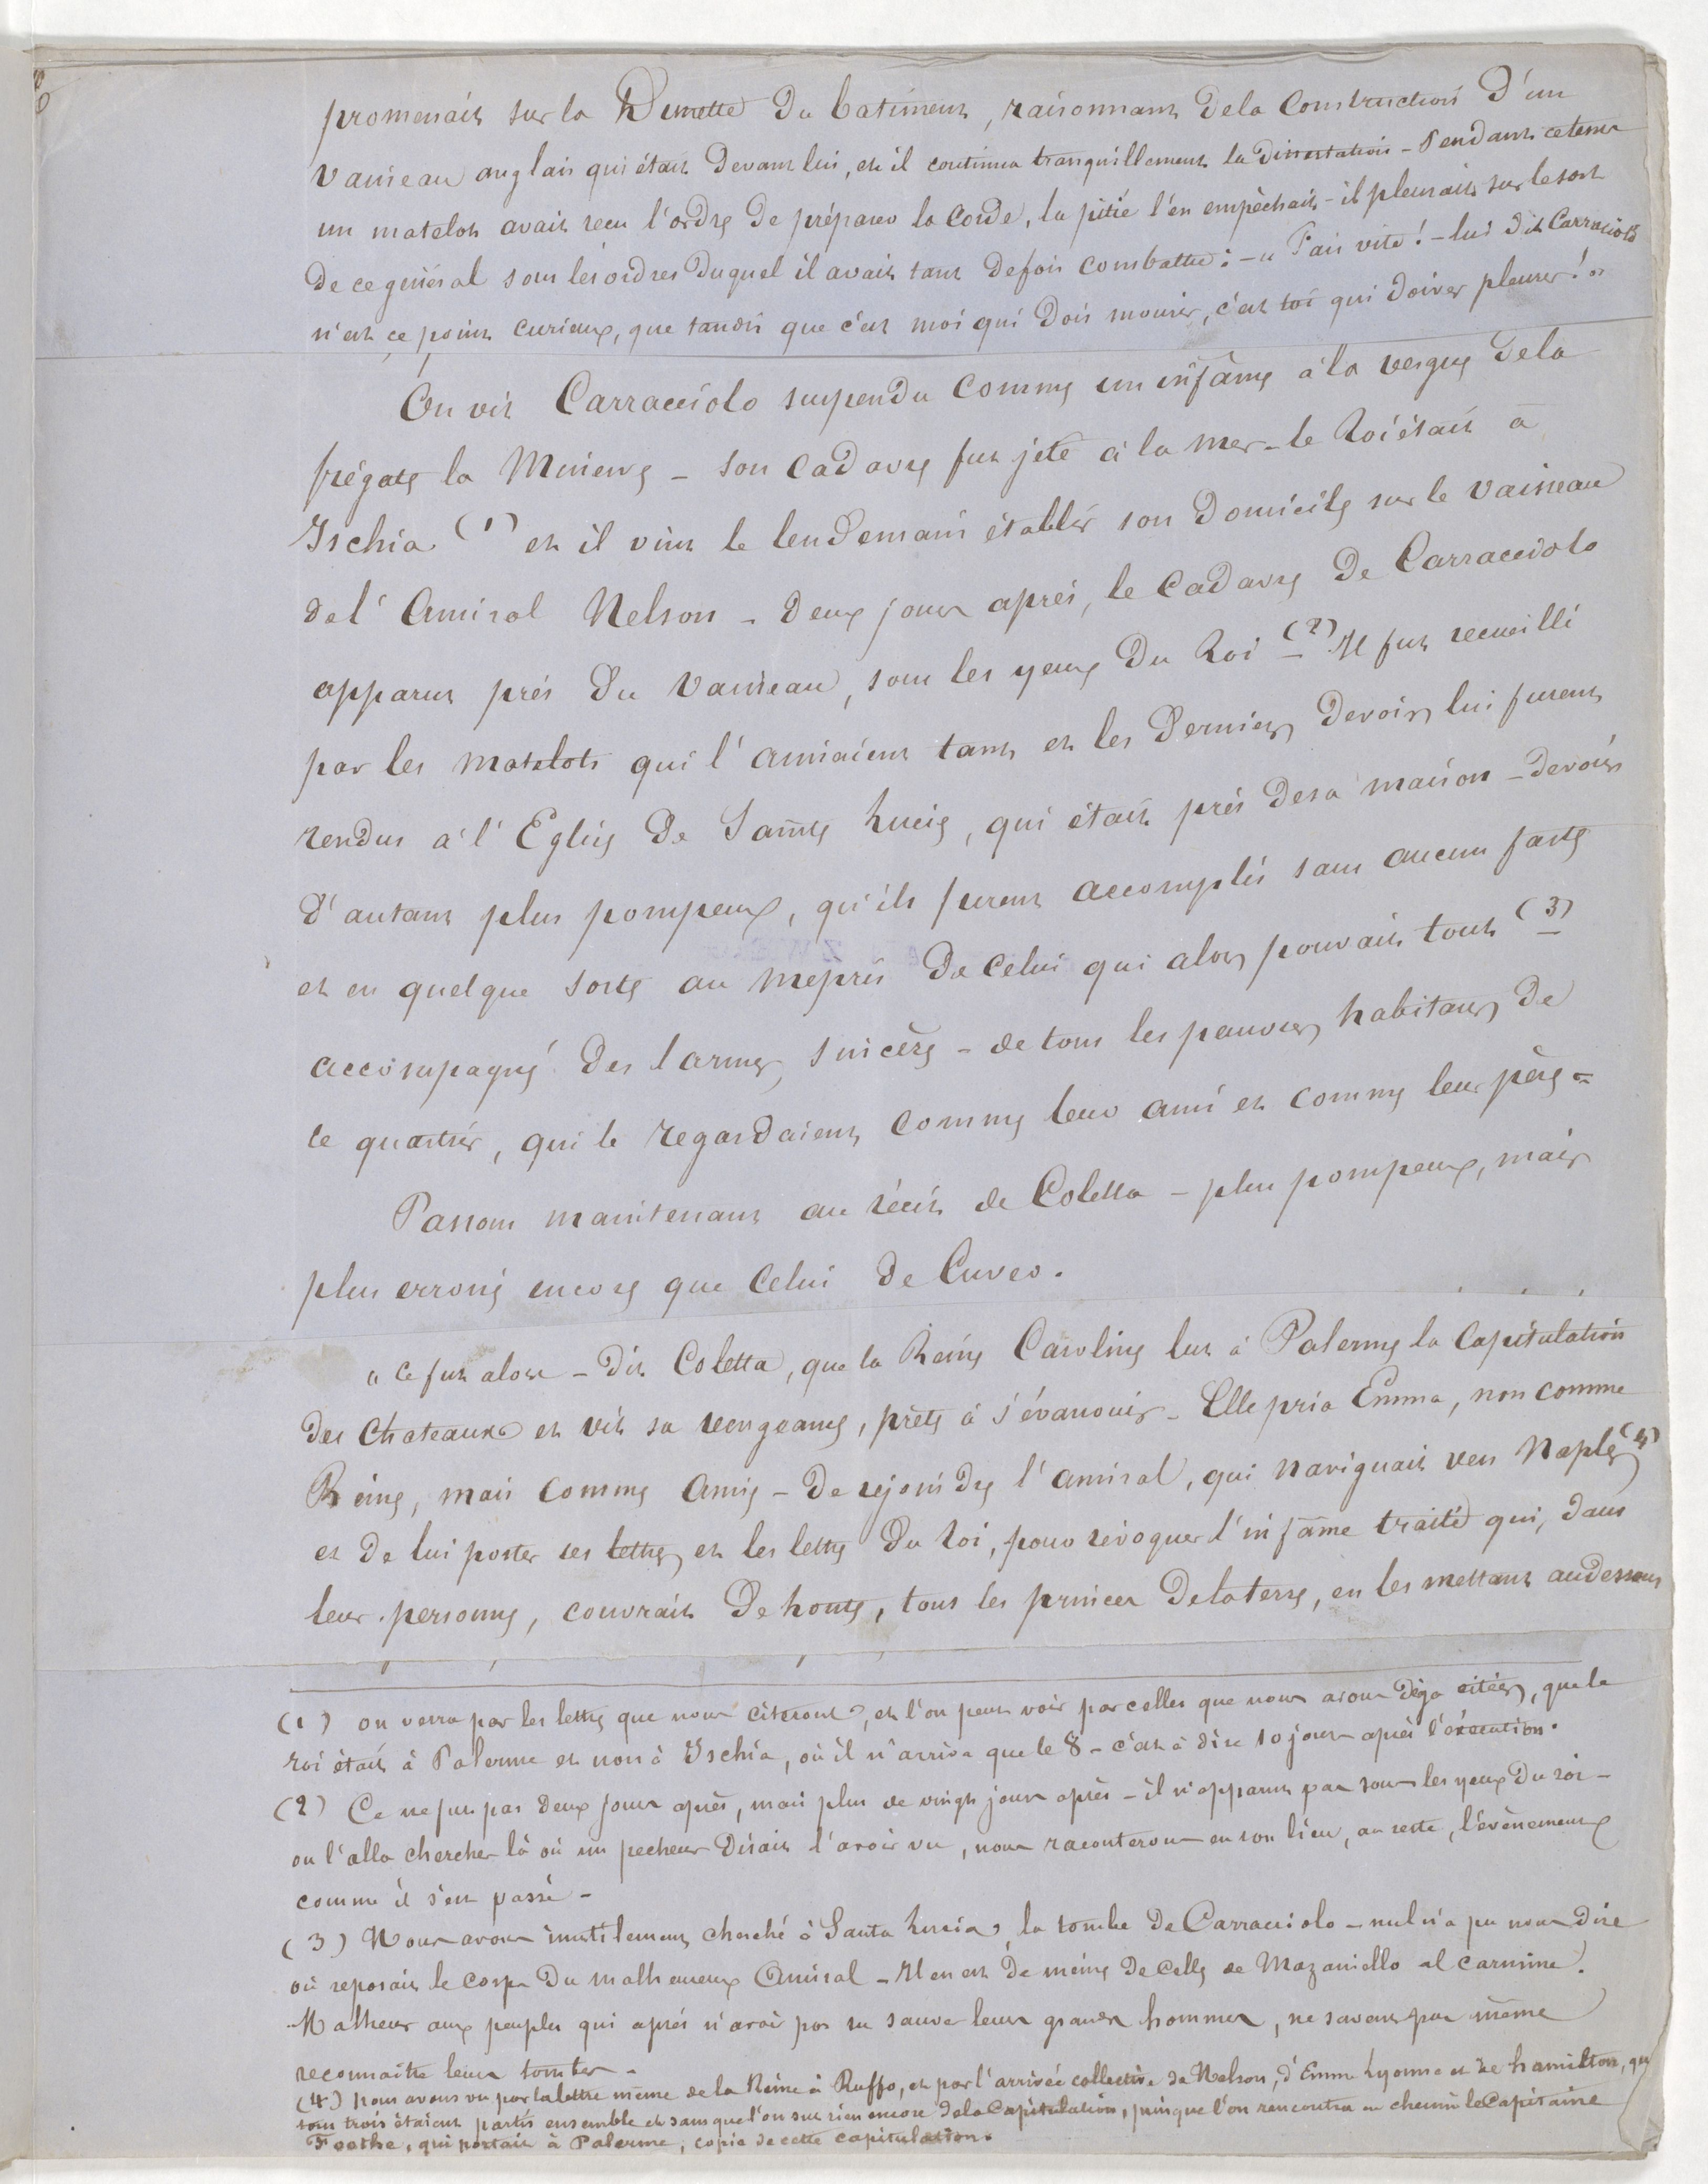 promenait sur la Dunette du batiment, raisonnant dela Construction d'un
vaisseau anglais qui était devant lui, et il continua tranquillement la dissertation - Pendant cetems
un matelot avait reçu l'ordre de préparer la Corde, la pitié l'en empêchait - il pleurait sur le sort
de ce général sous les ordres duquel il avait tant defois combattu: - « Fais vite! - lui dit Carraciolo
n'est ce point curieux, que tandis que c'est moi qui dois mourir, c'est toi qui doives pleurer! »
On vit Carracciolo suspendu comme un infâme à la vergue dela
frégate la Minerve - son Cadavre fut jeté à la mer - le Roi était à
Ischia (1) et il vint le lendemain établir son domicile sur le vaisseau
del'Amiral Nelson - deux jours après, le Cadavre de Carracciolo
apparut près du vaisseau, sous les yeux du Roi (2) Il fut recueilli
par les matelots qui l'aimaient tant et les derniers devoirs lui furent
rendus à l'Eglise de Sainte Lucie, qui était près desa maison - devoirs
d'autant plus pompeux, qu'ils furent accomplis sans aucun faste
et en quelque sorte au mepris de celui qui alors pouvait tout (3)
accompagné des larmes sincères - de tous les pauvres habitans de
ce quartier, qui le regardaient comme leur ami et comme leur père =
Passons maintenant au récit de Coletta - plus pompeux, mais
plus erroné encore que celui de Cuveo.
« Ce fut alors - dit Coletta, que la Reine Caroline lut à Palerme la Capitulation
des Chateaux et vit sa vengeance, prête à s'évanouir - Elle pria Emma, non comme
Reine, mais comme Amie - de rejoindre l'amiral, qui naviguait vers Naples (4)
et de lui porter ses lettres et les lettres du roi, pour révoquer l'infâme traité qui, dans
leur personne, couvrait de honte, tous les princes delaterre, en les mettant audessous
(1) on verra par les lettres que nous citerons, et l'on peut voir par celles que nous avons déja citées, que le
roi était à Palerme et non à Ischia, où il n'arriva que le 8 - c'est à dire 10 jours après l'éxecution.
(2) Ce ne fut pas deux jours après, mais plus de vingt jours après - il n'apparut pas sous les yeux du roi -
on l'alla chercher là où un pecheur disait l'avoir vu, nous raconterons en son lieu, au reste, l'évènement
comme il s'est passé -
(3) Nous avons inutilement cherché à Santa Lucia, la tombe de Carracciolo - nul n'a pu nous dire
où reposait le corps du malheureux Amiral - Il en est de même de celle de Mazaniello al carmine.
Malheur aux peuples qui après n'avoir pas su sauver leurs grands hommes, ne savent pas même
reconnaitre leurs tombes -
(4) nous avons vu par la lettre même de la Reine à Ruffo, et par l'arrivée collective de Nelson, d'Emma Lyonna et de hamilton, que
tous trois étaient partis ensemble et sans que l'on sut rien encore dela Capitulation, puisque l'on rencontra en chemin le Capitaine
Foothe, qui portait à Palerme, copie de cette capitulation.